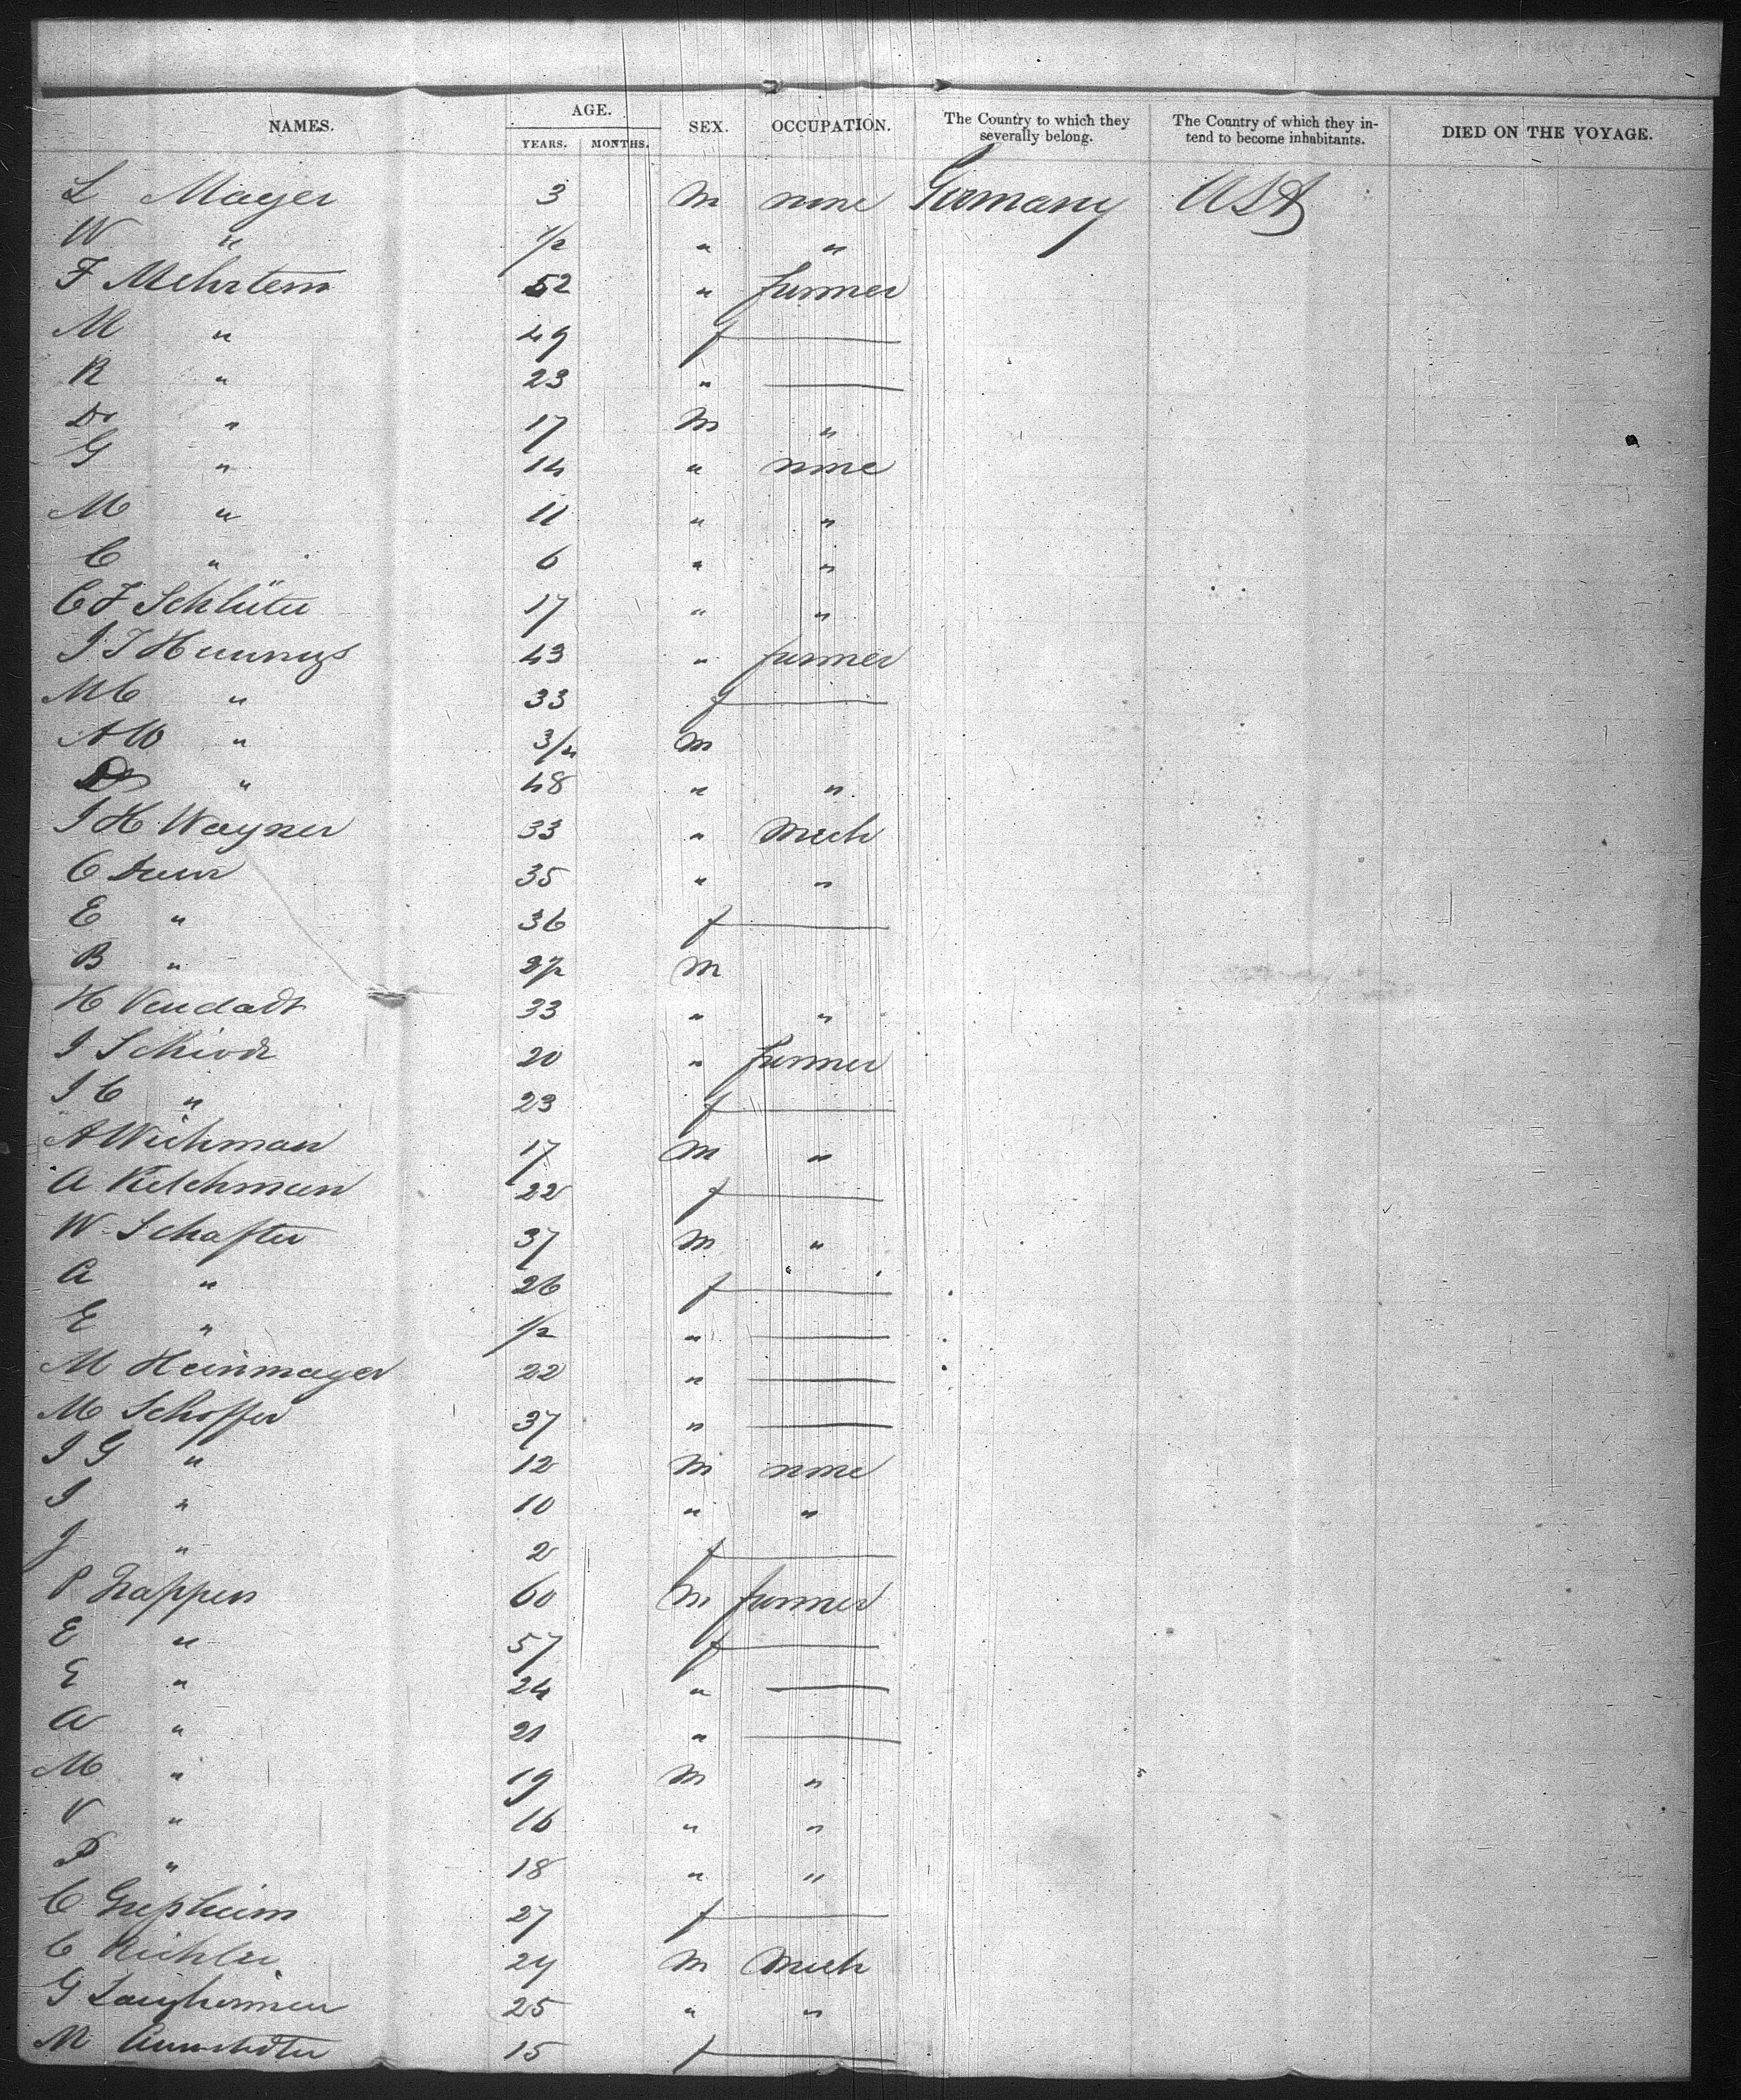 NAMES. AGE. SEX. OCCUPATION. The Country to which they severally belong. The Country of which they intend to become inhabitants. DIED ON THE VOYAGE.
YEARS. MONTHS.
L Mayer 3 m none Germany USA
W " 1/2 " "
F Mehrtens 52 " farmer
M " 49 f —
R " 23 " —
D " 17 m "
G " 14 " none
M " 11 " "
C " 6 " "
C F Schlüter 17 " "
J J 43 " farmer
M C " 33 f —
A W " 3/4 m
" 48 " "
J H Wagner 33 " mech
C 35 " "
E " 36 f —
B " m
H 33 " "
J 20 " farmer
J C " 23 f —
A Wichman 17 m "
A 22 f —
W Schafter 37 m "
A " 26 f —
E " 1/2 " —
M Heinmayer 22 " —
M Schoffer 37 " —
J G " 12 m none
J " 10 " "
J " 2 f —
P Trappen 60 m farmer
E " 57 f —
E " 24 " —
A " 21 " —
M " 19 m "
V " 16 " "
P " 18 " "
C 27 f —
C Richter 24 m mech
G 25 " "
M 15 f —